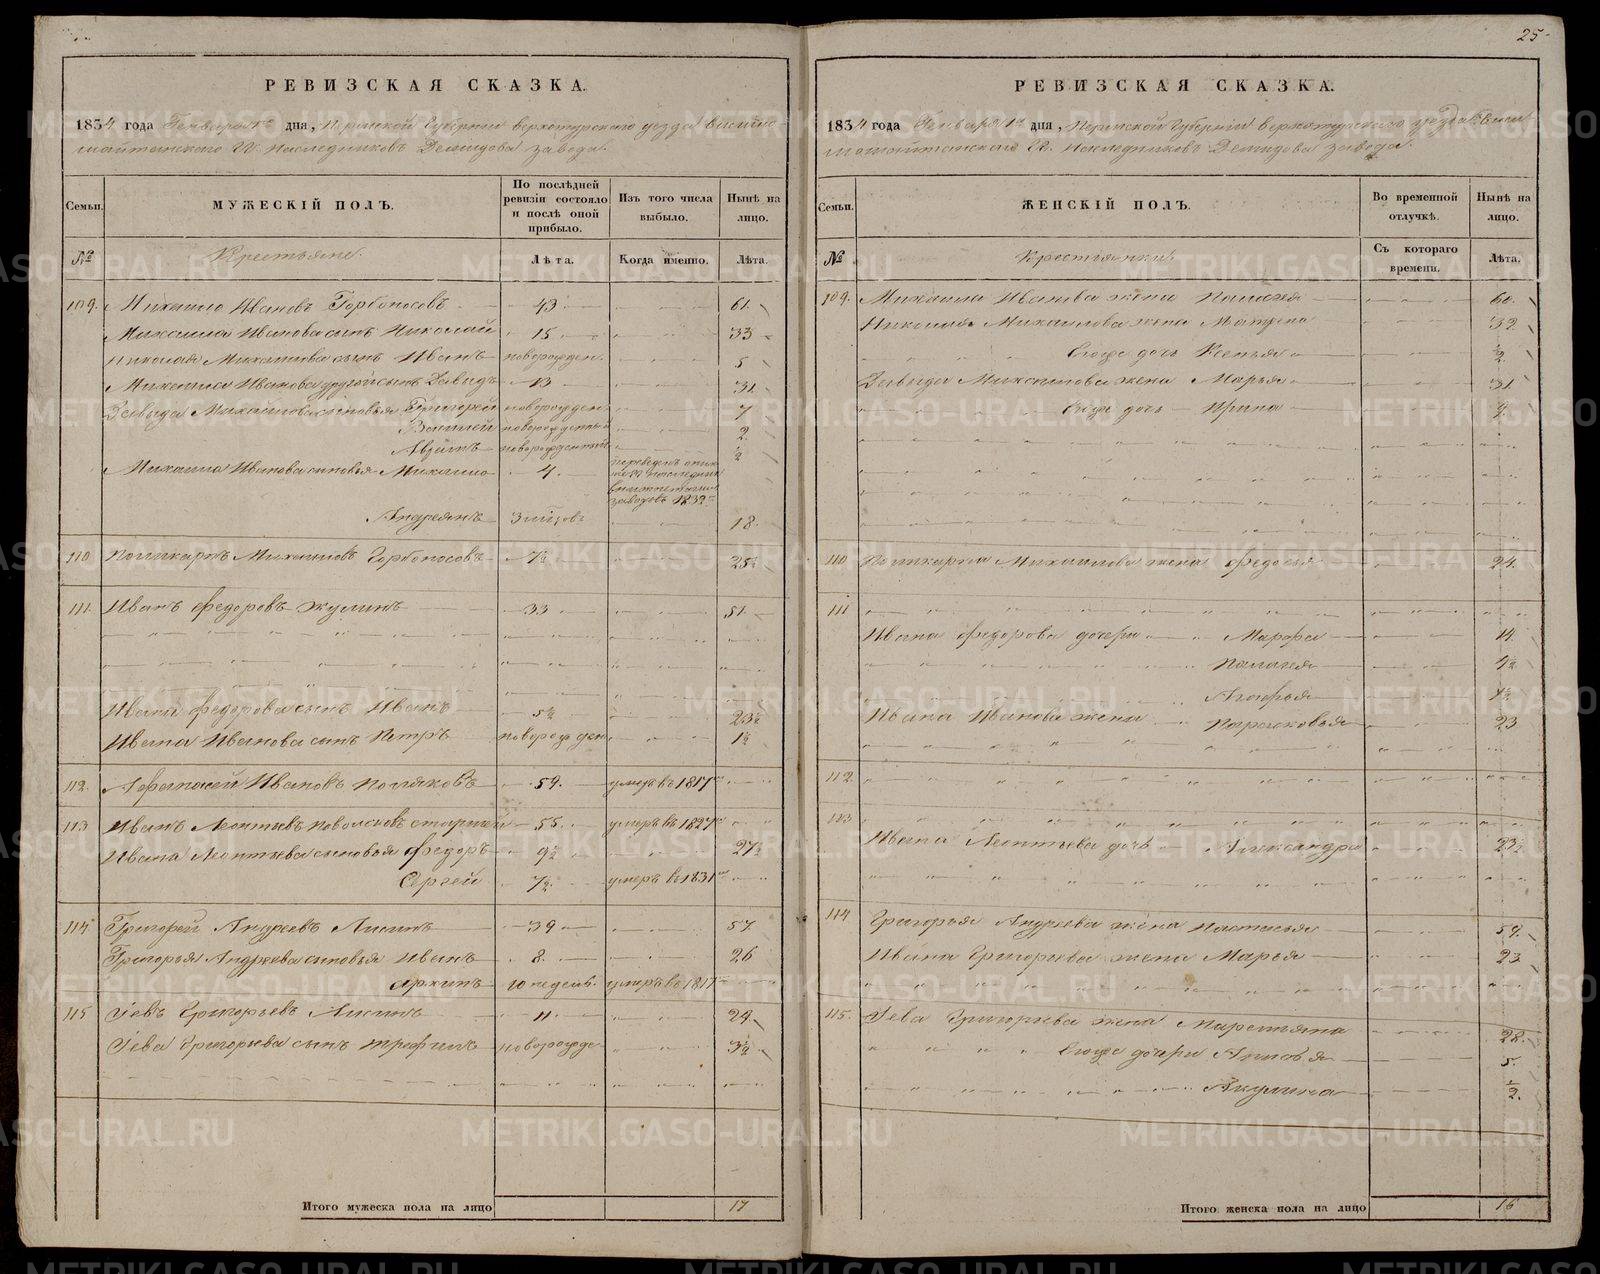 25
РЕВИЗСКАЯ СКАЗКА.
1834 года Генваря 1го дня, Пермской Губернии Верхотурскаго уезда Висимо
шайтанскаго Гг. Наследниковъ Демидова завода.
Семьи.
МУЖЕСКІЙ ПОЛЪ.
По послѣдней ревизіи состояло и послѣ оной прибыло.
Изъ того числа выбыло.
Нынѣ на лицо.
№
Крестьяне.
Лѣта.
Когда именно.
Лѣта.
109. Михаило Ивановъ Горбоносовъ 43 61
Михаила Иванова сынъ Николай 15 33
Николая Михаилова сынъ Иванъ новорожден. 5
Михаила Иванова другой сынъ Давидъ 13 31
Давида Михайлова сыновья Григорей новорожден 7
Василей новорожденый 2
новорожденный ½
Михаила Иванова сыновья Михаило 4.
заводовъ 1832
Андреянъ 18.
110 Поликарпъ Михаиловъ Горбоносовъ 7½ 25½
111. Иванъ Федоровъ Жулинъ 33 51
Ивана Федорова сынъ Иванъ 5½ 23½
Ивана Иванова сынъ Петръ новорожден 1½
112. Афанасей Ивановъ Поляковъ 59. умеръ въ 1817
113 Иванъ Леонтьевъ старшей 55 умеръ въ 1827
Ивана Леонтьева сыновья Федоръ 9½ 27½
Сергей 7½ умеръ въ 1831
114 Григорей Андреевъ Лисинъ 39 57
Григорья Андреева сыновья Иванъ 8. 26
Архипъ 10 недель. умеръ въ 1817
115 Гевъ Григорьевъ Лисинъ 11. 29
Гева Григорьева сынъ Трефилъ новорожде 3½
Итого мужеска пола на лицо 17
РЕВИЗСКАЯ СКАЗКА.
1834 года Генваря 1го дня, Пермской Губерніи Верхотурскаго уезда Виси
мошайтанскаго Гг. Наследниковъ Демидова завода.
Семьи.
ЖЕНСКІЙ ПОЛЪ.
Во временной отлучкѣ.
Нынѣ на лицо.
№
Крестьянки.
Съ котораго времени.
Лѣта.
109. Михаила Иванова жена Палагея 60.
Николая Михаилова жена Матрена 32
Ево же дочь Ксенья ½
Давида Михаилова жена Марья 31
Ево же дочь Ирина
110 Поликарпа Михаилова жена Федосья 24.
111
Ивана Федорова дочери Марфа 14
Палагея
Агафья
Ивана Иванова жена Парасковья 23
112.
113
Ивана Леонтьева дочь Александра 23½
114 Григорья Андреева жена Настасья 59.
Ивана Григорьева жена Марья 23
115. Гева Григорьева жена Маремьяна 28.
Ево же дочери 5.
Акулина ½.
Итого женска пола на лицо 16
METRIKI.GASO-URAL.RU